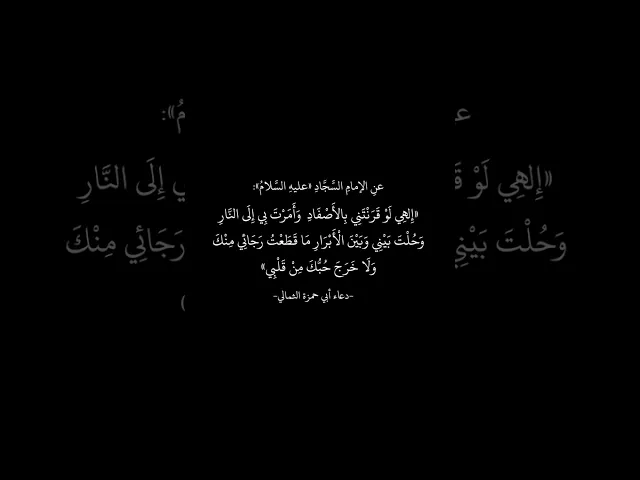 عنِ الإمامِ السَّجَّادِ «عليهِ السَّلامُ»:
«إِلهِي لَوْ قَرَنْتَنِي بِالأَصْفَادِ وَأَمَرْتَ بِي إِلَى النَّارِ
وَحُلْتَ بَيْنِي وَبَيْنَ الْأَبْرَارِ مَا قَطَعْتُ رَجَائِي مِنْكَ
وَلَا خَرَجَ حُبُّكَ مِنْ قَلْبِي»
-دعاء أبي حمزة الثمالي-